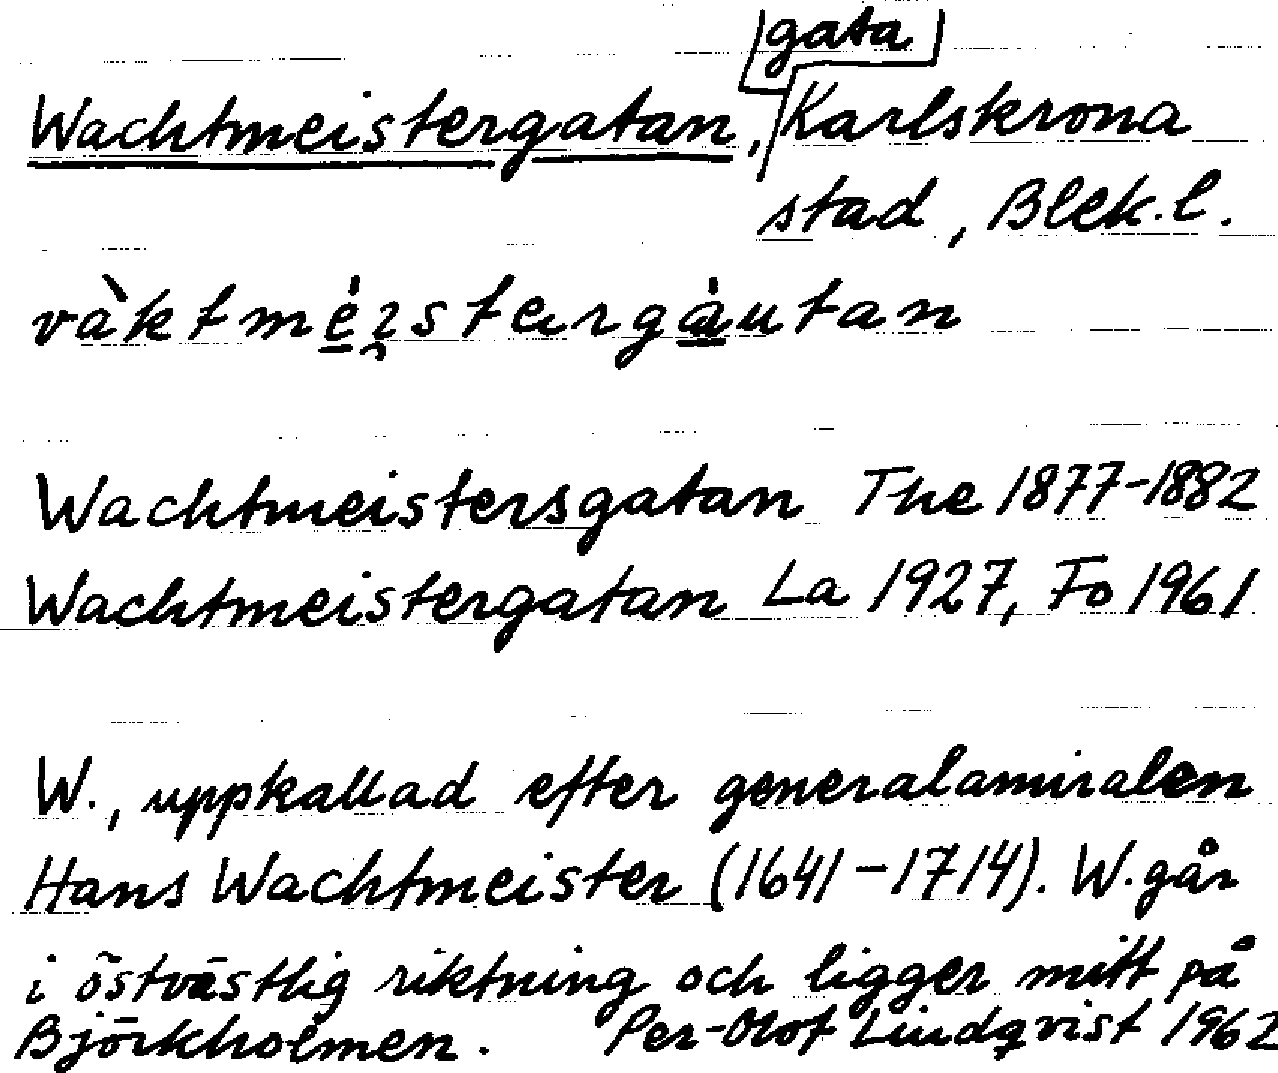 gata
Wachtmeistergatan, Karlskrona
stad, Blek. l.
Wachtmeistersgatan The 1877-1882
Wachtmeistergatan La 1927, Fo 1961
W., uppkallad efter generalamiralen
Hans Wachtmeister (1641-1714). W. går
i östvästlig riktning och ligger mitt på
Björkholmen. Per-Olof Lindqvist 1962